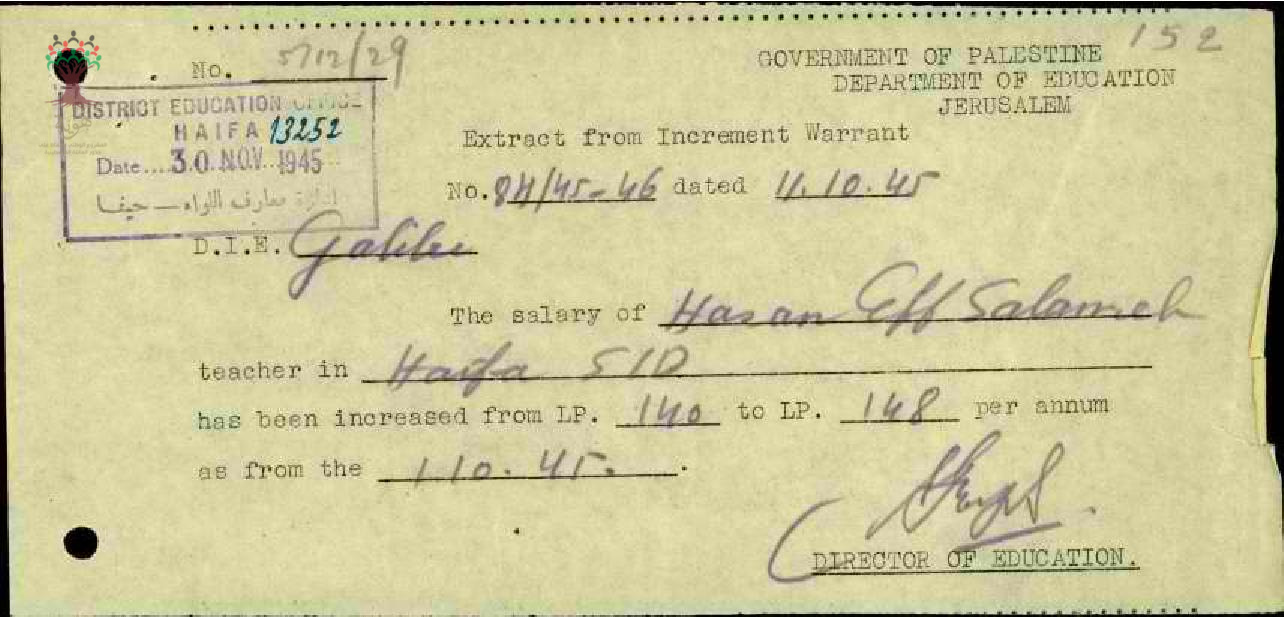 152
No. 5/12/29
GOVERNMENT OF PALESTINE
DEPARTMENT OF EDUCATION
JERUSALEM
DISTRICT EDUCATION OFFICE
HAIFA 13252
Date.... 30 NOV 1945
ادارة معارف اللواء — حيفا
Extract from Increment Warrant
No. 84/45-46 dated 11.10.45
D.I.E. Galilee
The salary of Hasan Eff Salameh
teacher in Haifa S1D
has been increased from LP. 140 to LP. 148 per annum
as from the 1.10.45.
DIRECTOR OF EDUCATION.